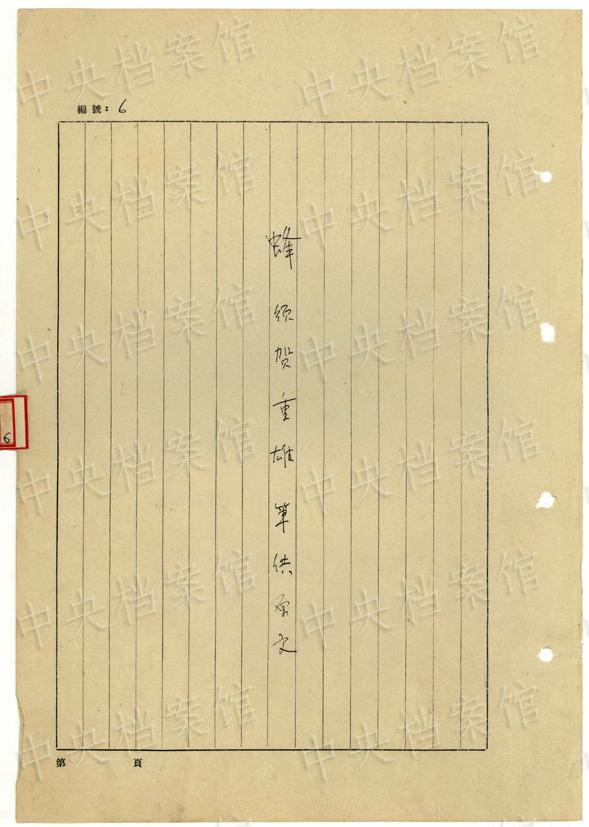 編號：6
蜂須贺重雄筆供原文
6
第 頁
中央档案馆